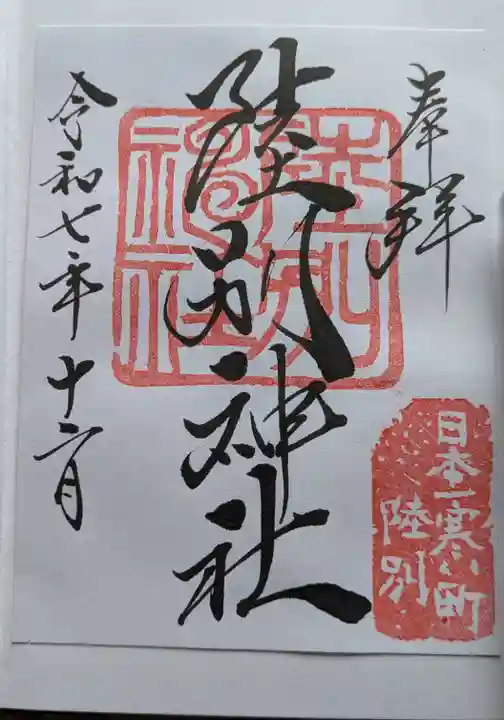 奉拝
日本一寒い町
陸別
陸別神社
陸別
神社
令和七年十二月